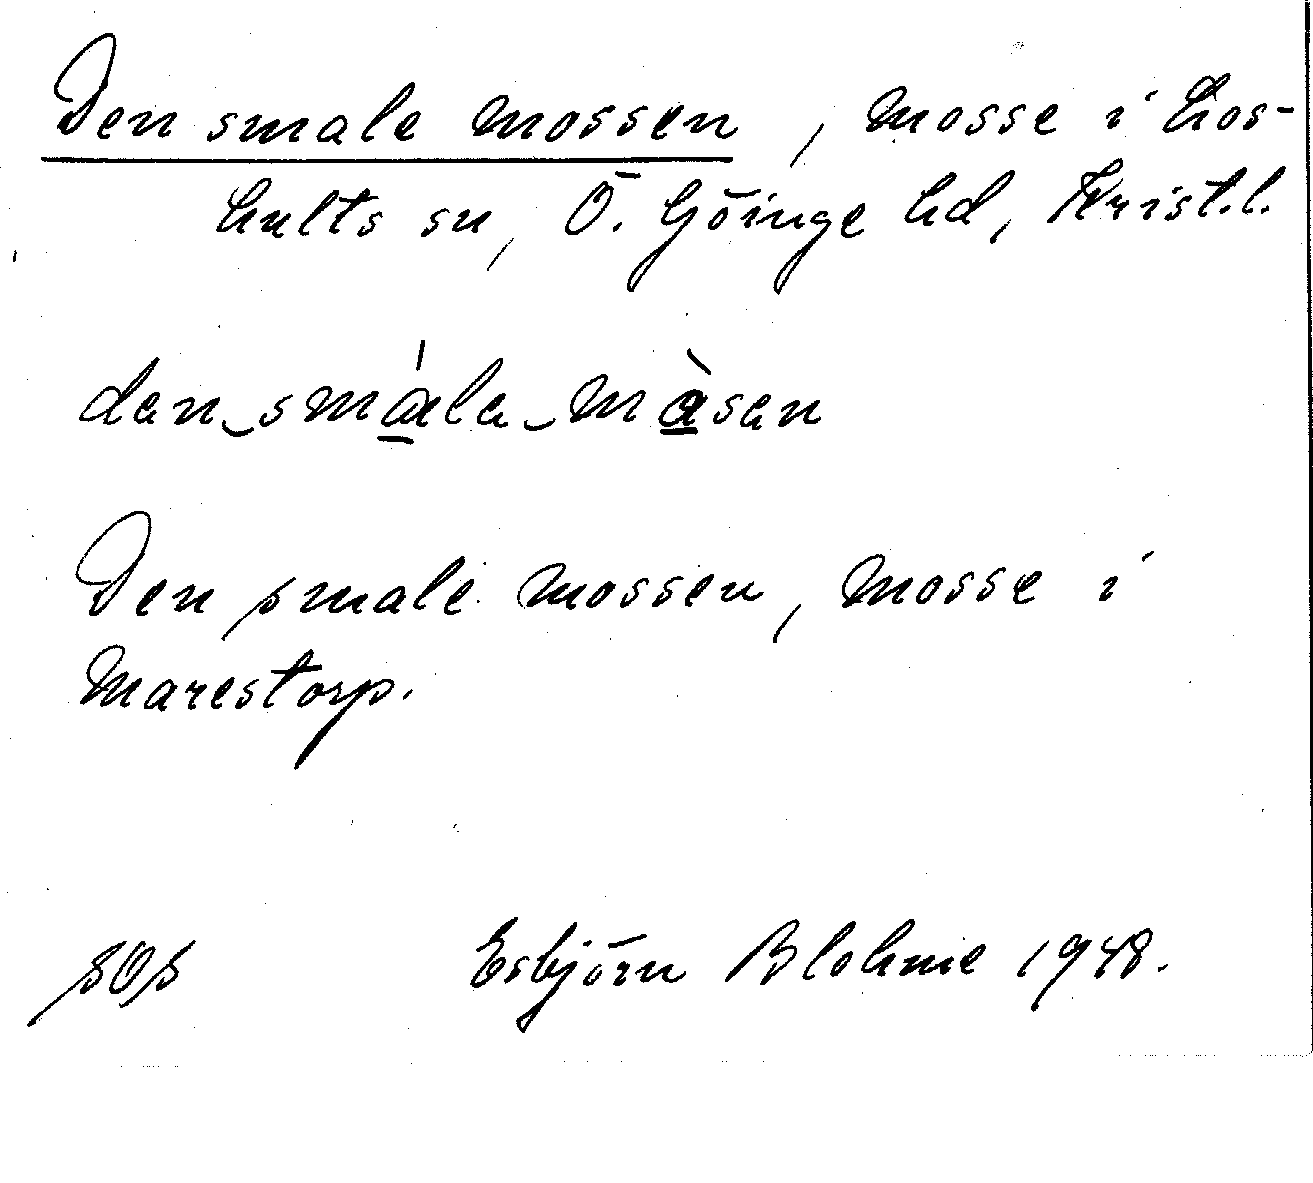 Den smale mossen, mosse i Los-
hults sn, Ö. Göinge hd, Krist.l.
dan smála màsan
Den smale mossen, mosse i
Marestorp.
sOs Esbjörn Blohme 1948.